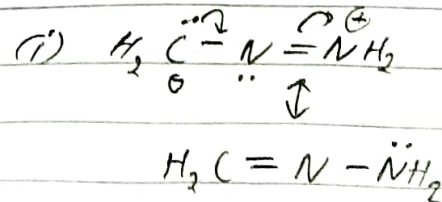 (i) H₂C̈⊖ – N̈ = N⊕H₂
↕
H₂C = N – N̈H₂